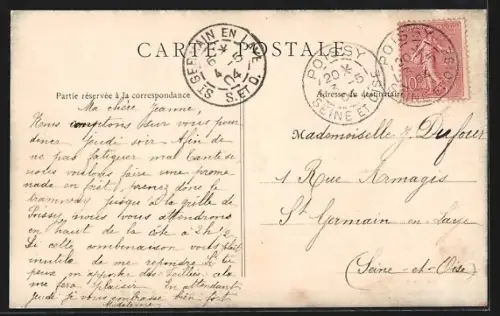 CARTE POSTALE
ST GERMAIN EN LAYE
6* 4-5 04
S. ET O.
POISSY
20* 3-5
SEINE ET OISE
POISSY
SEINE ET OISE
10
Partie réservée à la correspondance
Adresse du destinataire
Ma chère Jeanne,
Nous comptons sur vous pour
diner jeudi soir. Afin de
ne pas fatiguer ma tante si
vous voulons faire une prome
nade en forêt, prenez donc le
tramway jusque à la grille de
Poissy, nous vous attendrons
en haut de la côte à 2h ½
Si cette combinaison vous plait
inutile de me répondre. Si tu
peux en apporter des feuilles cela
me fera plaisir. En attendant
jeudi je vous embrasse bien fort
Madeleine
Mademoiselle J. Dufour
1 Rue Armagis
St Germain en-Laye
(Seine-et-Oise)